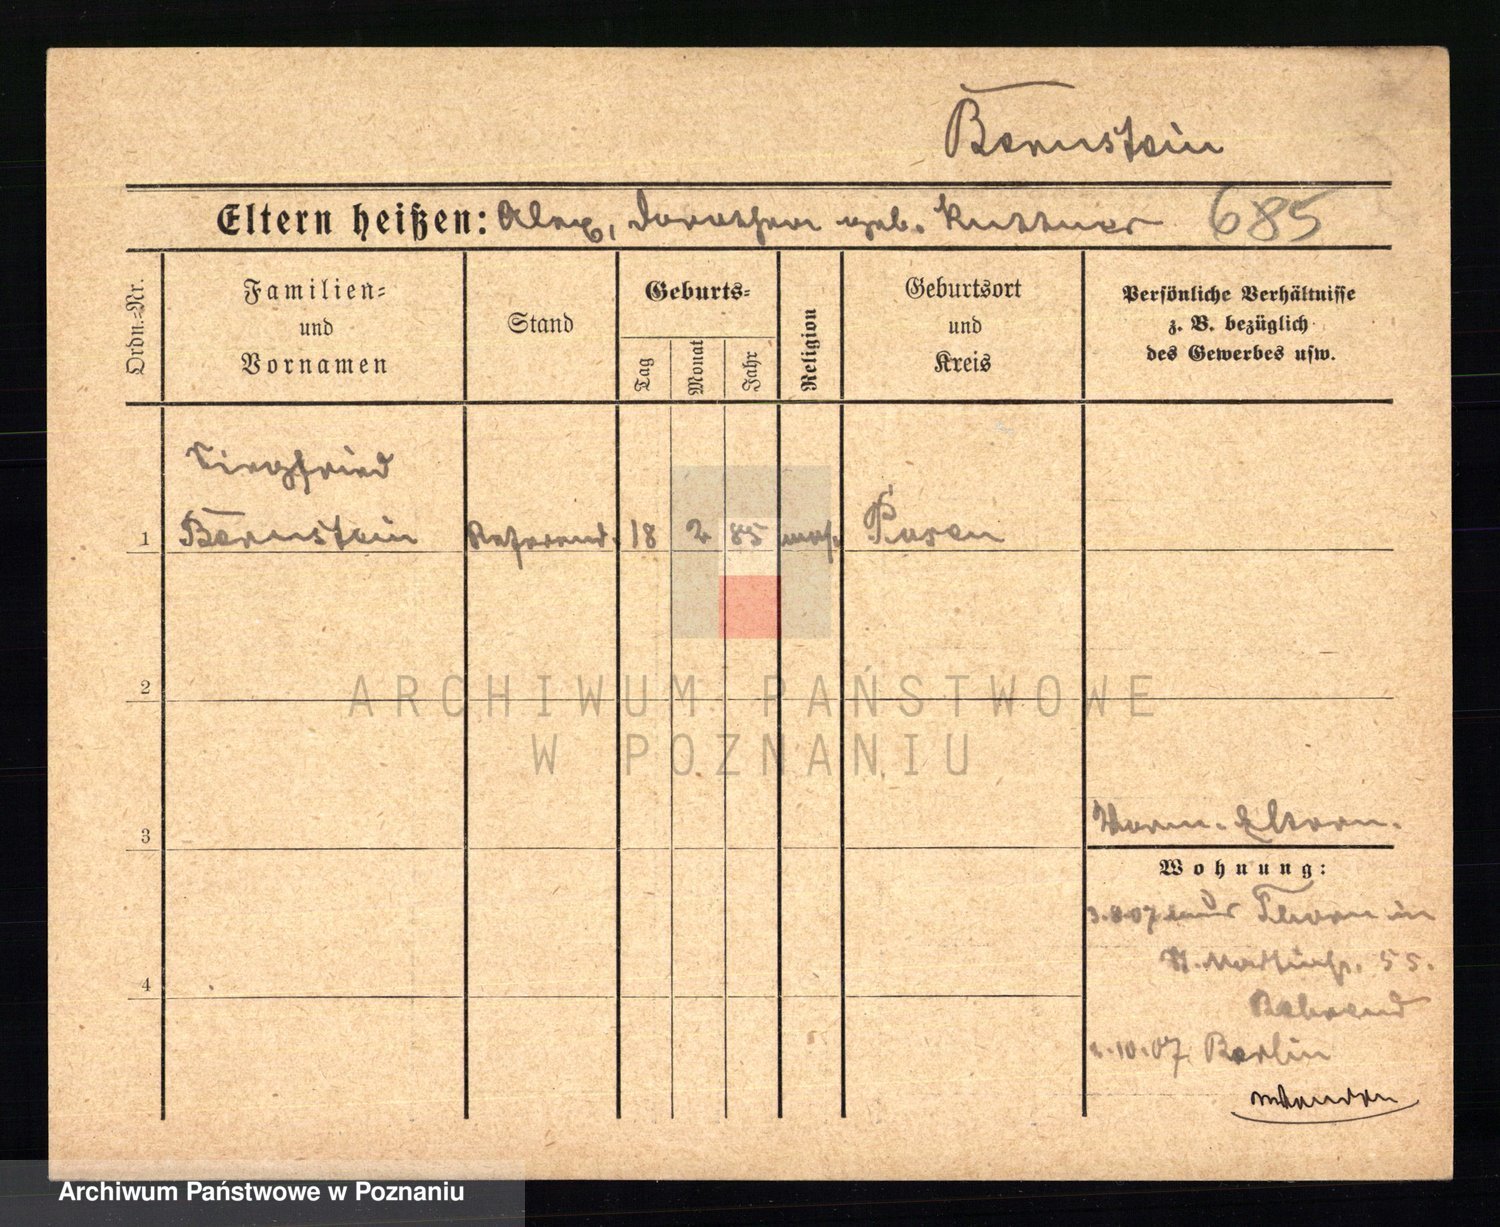 Bernstein
Eltern heißen: Alex, Dorothea geb. Kuttner 685
Ordn.-Nr.
Familien-
und
Vornamen
Stand
Geburts-
Tag
Monat
Jahr
Religion
Geburtsort
und
Kreis
Persönliche Verhältnisse
z. B. bezüglich
des Gewerbes usw.
Siegfried
1 Bernstein Referend. 18 2 85 mos. Posen
2
ARCHIWUM PAŃSTWOWE
W POZNANIU
3
Eltern.
Wohnung:
3.8.07 aus Thorn in
St. Martinstr. 55.
Behrend
4
10.07 Berlin
Archiwum Państwowe w Poznaniu